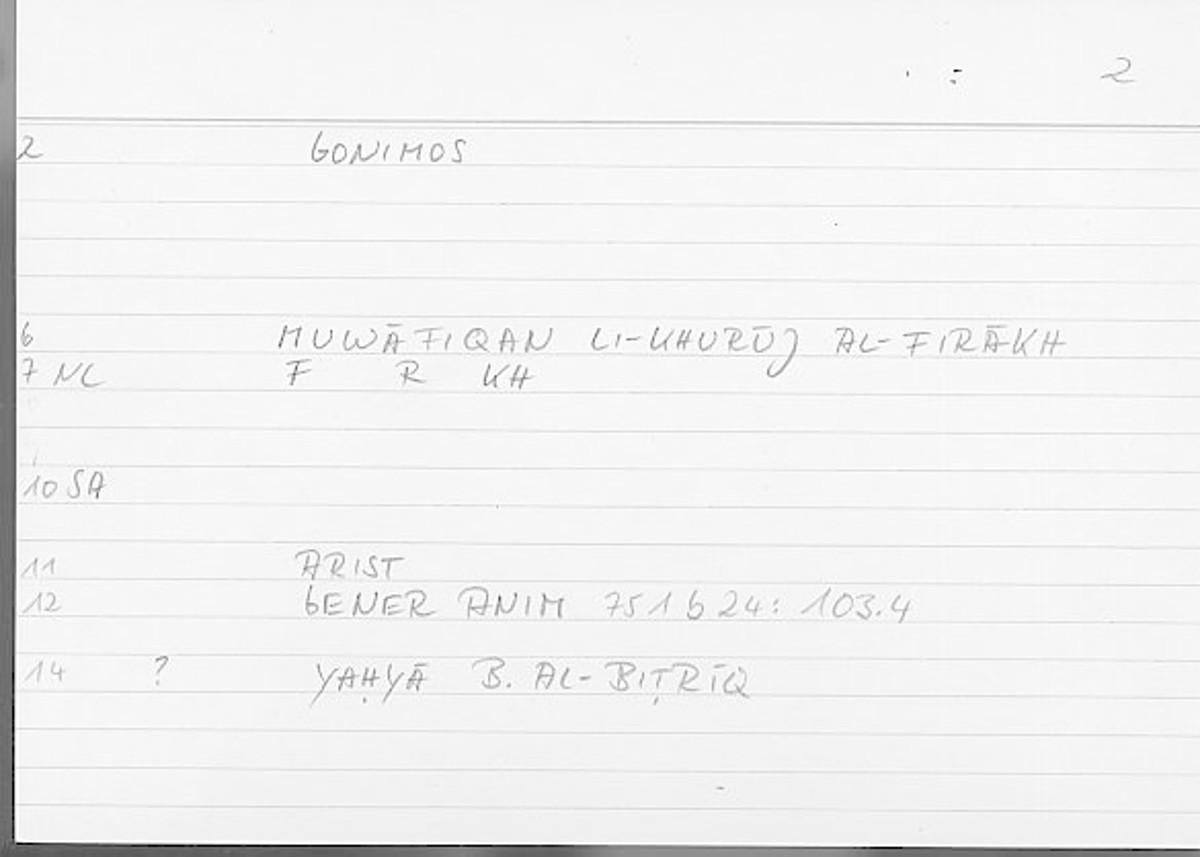 2
2 GONIMOS
6 MUWĀFIQAN LI-KHURŪJ AL-FIRĀKH
7 NL F R KH
10 SA
11 ARIST
12 GENER ANIM 751 b 24: 103.4
14 ? YAḤYĀ B. AL-BIṬRĪQ